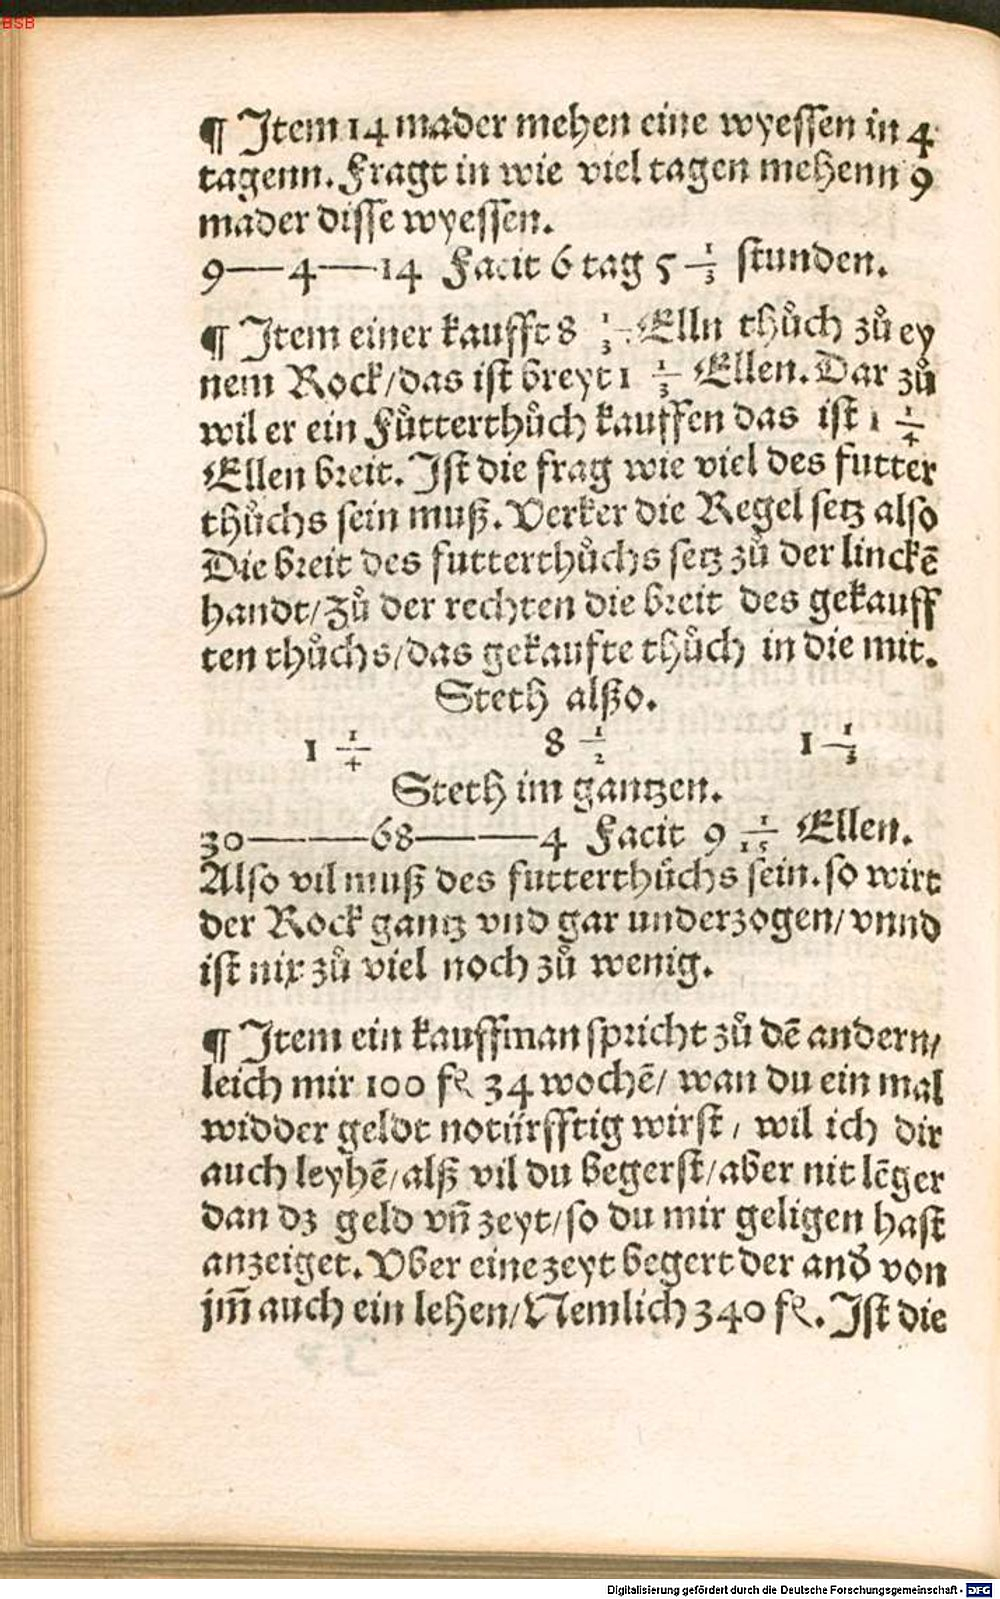 BSB
¶ Item 14 mader mehen eine wyessen in 4
tagenn. Fragt in wie viel tagen mehenn 9
mader disse wyessen.
9——4——14 Facit 6 tag 5 1/3 stunden.
¶ Item einer kaufft 8 1/3 Elln thůch zů ey
nem Rock/das ist breyt 1 1/3 Ellen. Dar zů
wil er ein Fůtterthůch kauffen das ist 1 1/4
Ellen breit. Ist die frag wie viel des futter
thůchs sein muß. Verker die Regel setz also
Die breit des futterthůchs setz zů der linckē
handt/Zů der rechten die breit des gekauff
ten thůchs/das gekaufte thůch in die mit.
Steth alßo.
1 1/4 8 1/2 1 1/3
Steth im gantzen.
30———68———4 Facit 9 1/15 Ellen.
Also vil muß des futterthůchs sein. so wirt
der Rock gantz vnd gar underzogen/vnnd
ist nix zů viel noch zů wenig.
¶ Item ein kauffman spricht zů dē andern/
leich mir 100 fl 34 wochē/ wan du ein mal
widder geldt notürfftig wirst/ wil ich dir
auch leyhē/alß vil du begerst/aber nit lēger
dan dz geld vñ zeyt/so du mir geligen hast
anzeiget. Vber eine zeyt begert der and̄ von
jm̄ auch ein lehen/Nemlich 340 fl. Ist die
Digitalisierung gefördert durch die Deutsche Forschungsgemeinschaft - DFG